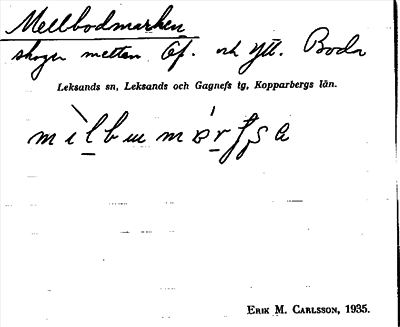 Mellbodmarken
skogen mellan Öf. och Ytt. Boda
Leksands sn, Leksands och Gagnefs tg, Kopparbergs län.
ERIK M. CARLSSON, 1935.